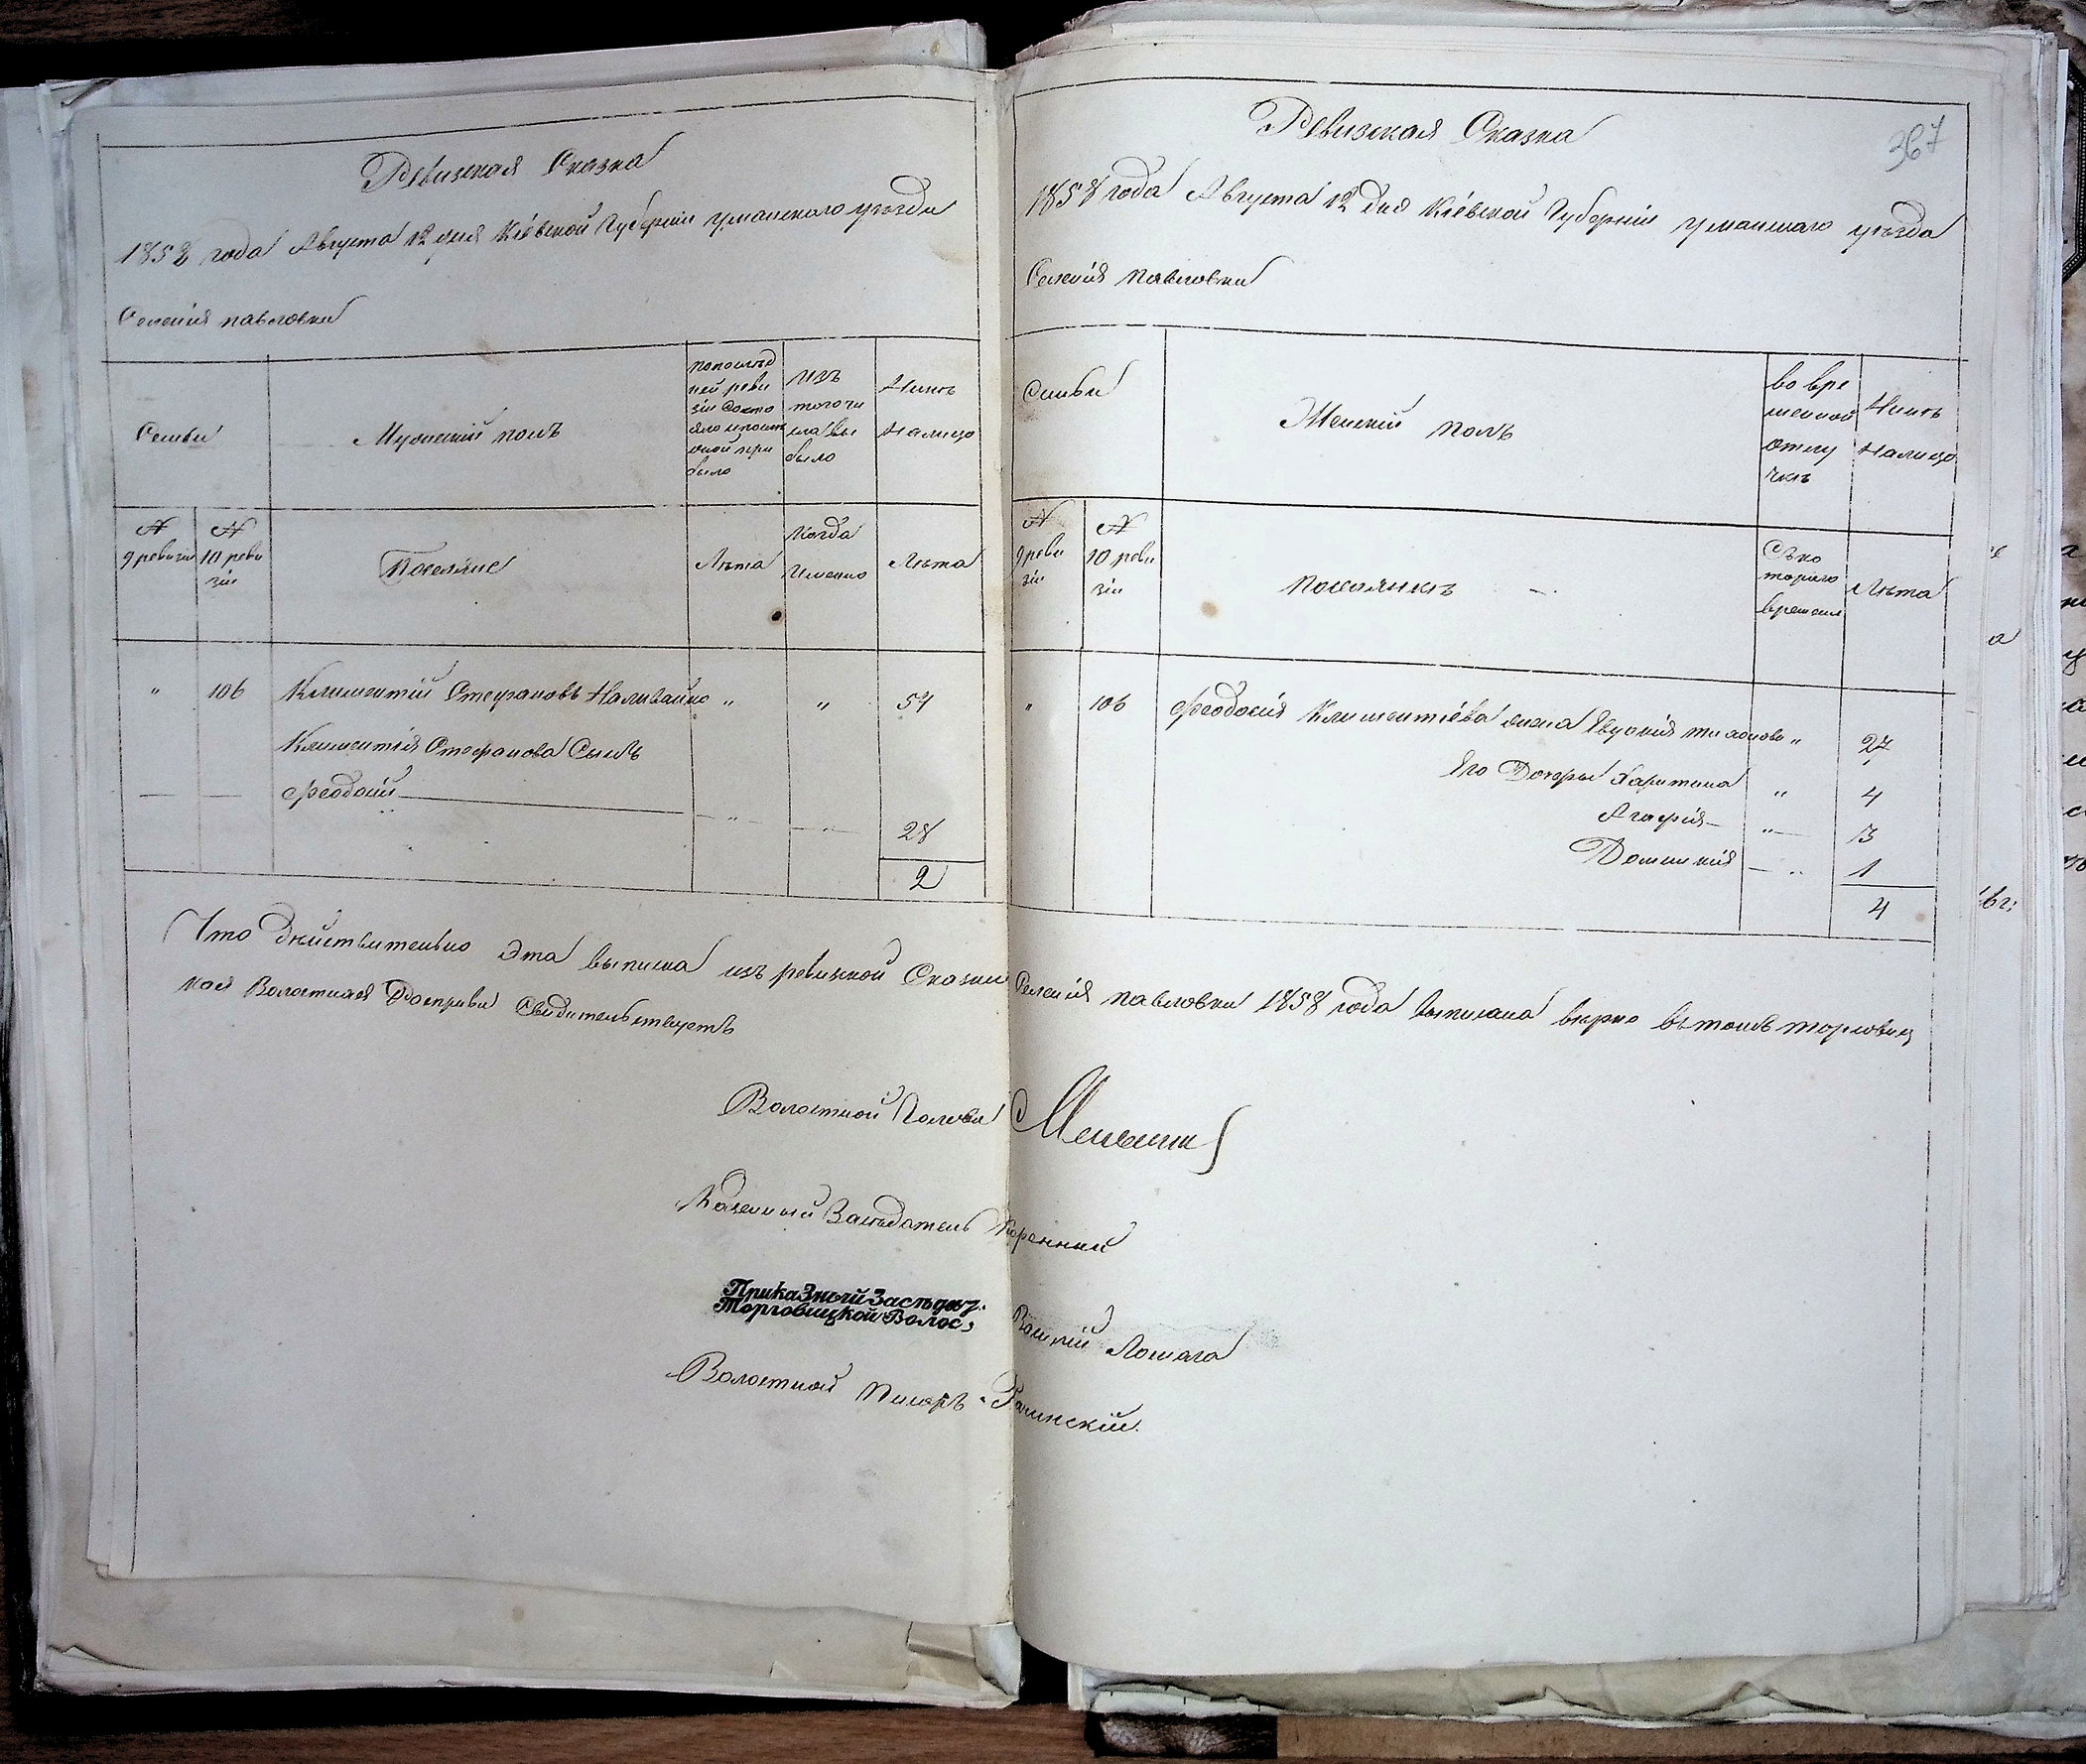 Ревизская Сказка
1858 года Августа 12 дня Кіевской Губерніи Уманскаго уѣзда
Селенія Павловки
Семьи
Мужескій полъ
по послѣд
ней реви
зіи состо
яло и послѣ
оной при
было
Изъ
того чи
сла вы
было
Нынѣ
Налицо
№
9 ревизіи
№
10 реви
зіи
Поселяне
Лѣта
Когда
Именно
Лѣта
" 106 Климентій Стефановъ Наливайко " " 54
Климентія Стефанова Сынъ
Феодосій " " 28
2
Ревизская Сказка
367
1858 года Августа 12 дня Кіевской Губерніи Уманскаго уѣзда
Селенія Павловки
Семьи
Женскій полъ
во вре
менной
отлу
чкѣ
Нынѣ
Налицо
№
9 реви
зіи
№
10 реви
зіи
Поселянкѣ
Съ ко
тораго
времени
Лѣта
" 106 Феодосія Климентіева жена Евдокія " 27
Его Дочери Харитина " 4
Агафія " 3
Домникія " 1
4
Что дѣйствительно эта выписка изъ ревизкой Сказки Селенія Павловки 1858 года выписана вѣрно въ томъ Торговиц
кая Волостная Росправа Свидительствуетъ
Волостной Голова
Казенный Засѣдатель Коренний
Приказный Засѣдат.
Торговицкой Волос.
Лошага
Волостной Писарь